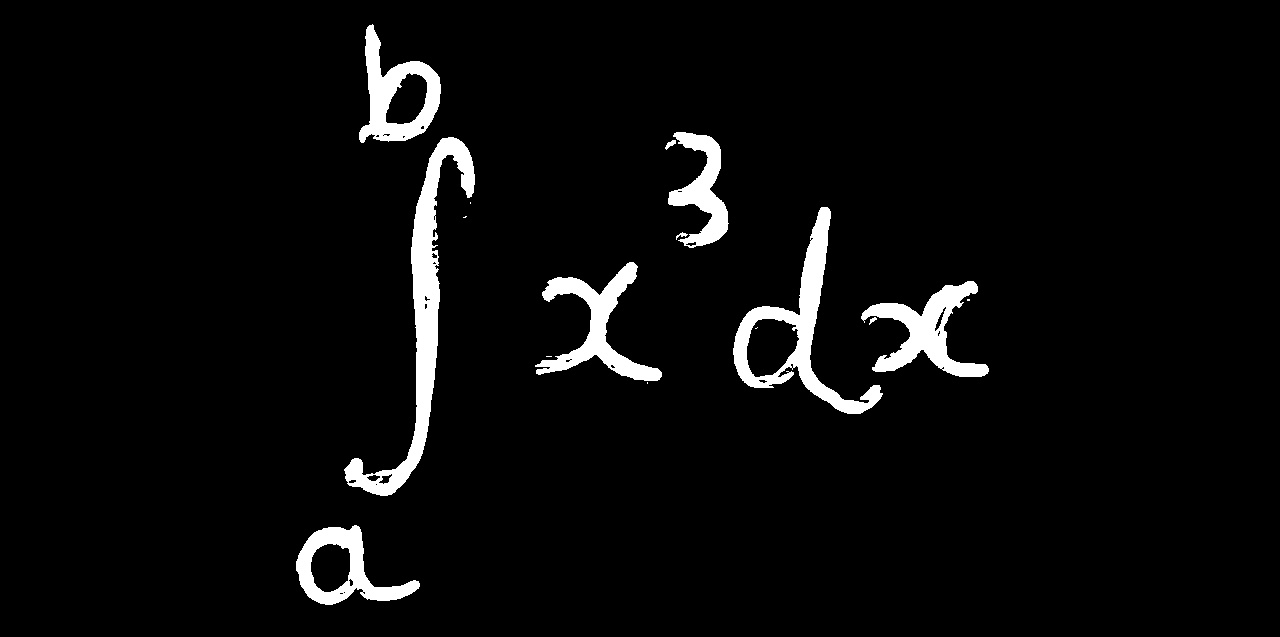 ∫ₐᵇ x³ dx